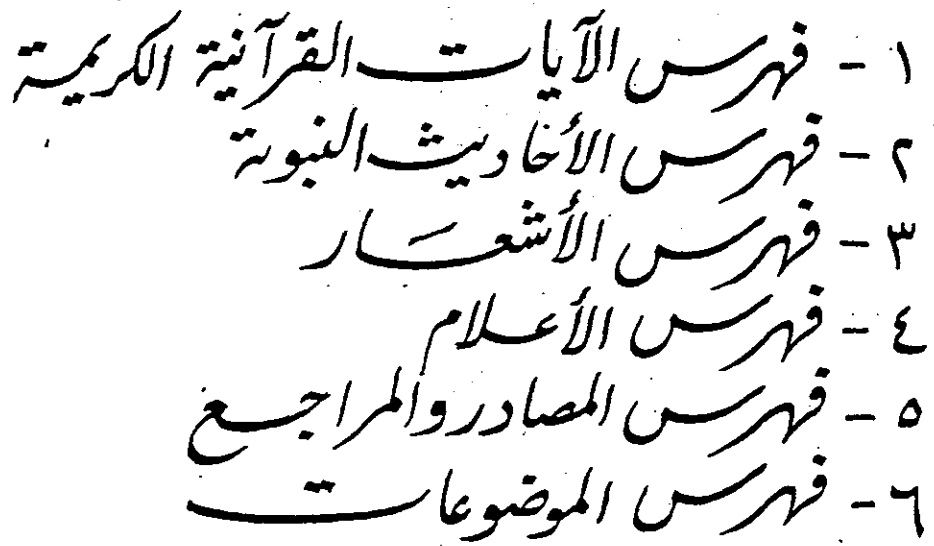 ١ - فهرس الآيات القرآنية الكريمة
٢ - فهرس الأحاديث النبوية
٣ - فهرس الأشعار
٤ - فهرس الأعلام
٥ - فهرس المصادر والمراجع
٦ - فهرس الموضوعات